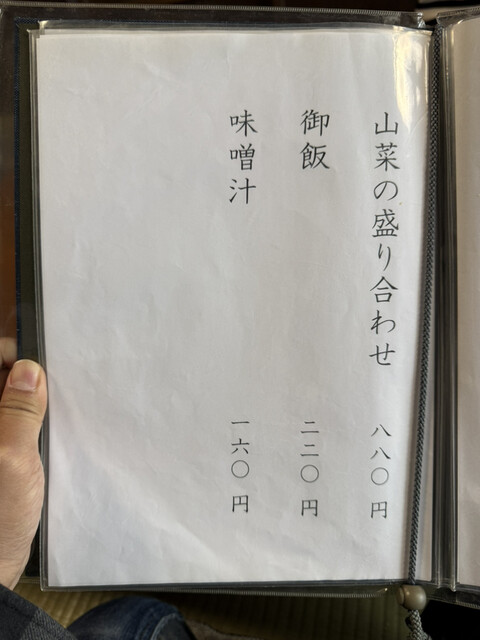 山菜の盛り合わせ 八八〇円
御飯 二二〇円
味噌汁 一六〇円